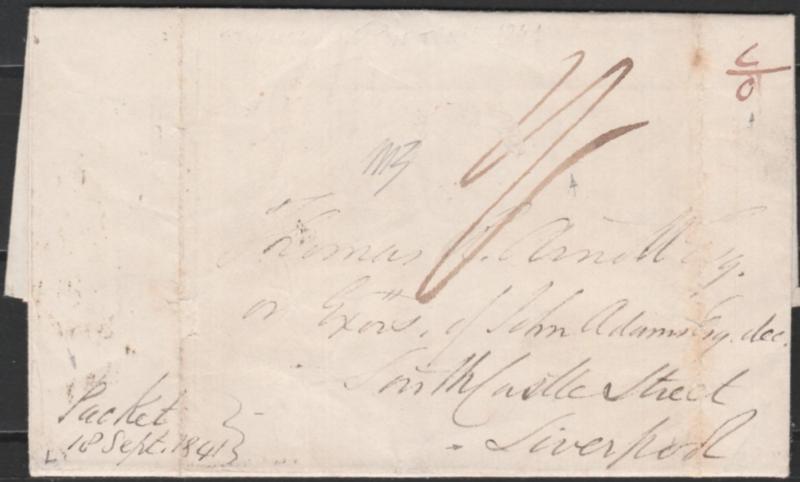 C/O
Thomas
or Exors. of John Adams Esq. dec.
South Castle Street
Liverpool
Packet
18 Sept. 1841